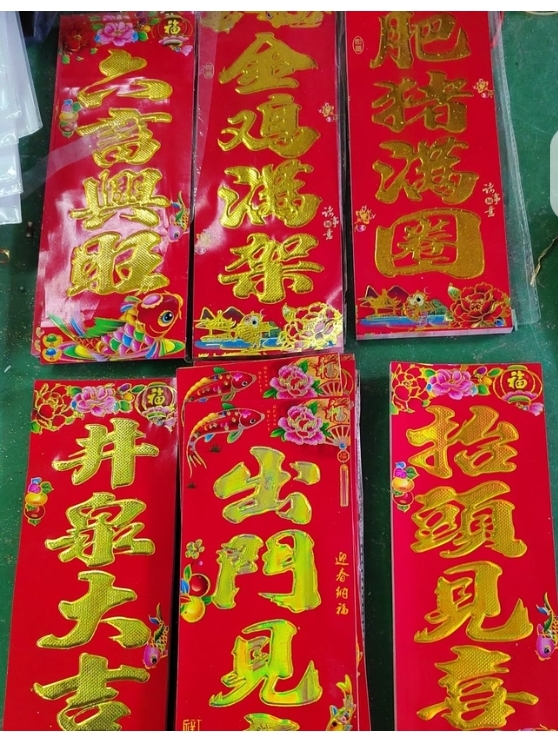 福
六畜興旺
金鸡满架
肥猪满圈
福
井泉大吉
出門見
迎春纳福
福
抬頭見喜